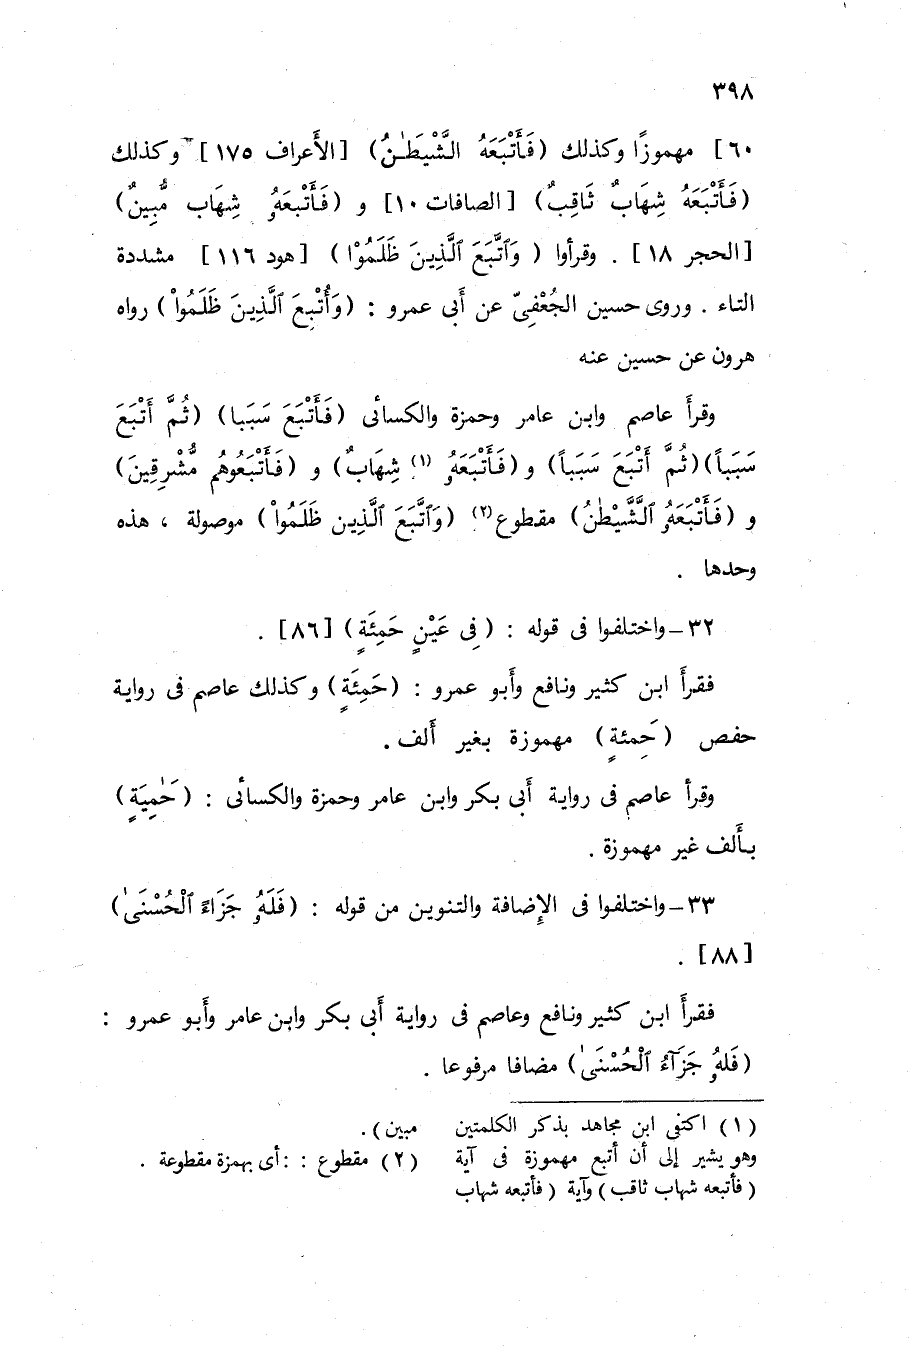 ٣٩٨
٦٠] مهموزًا وكذلك (فَأَتْبَعَهُ الشَّيْطَـٰنُ) [الأَعراف ١٧٥] وكذلك
(فَأَتْبَعَهُ شِهَابٌ ثَاقِبٌ) [الصافات ١٠] و (فَأَتْبَعَهُۥ شِهَاب مُّبِينٌ)
[الحجر ١٨] . وقرأوا ( وَٱتَّبَعَ ٱلَّذِينَ ظَلَمُوْا ) [هود ١١٦] مشددة
التاء . وروى حسين الجُعْفِىّ عن أَبى عمرو : (وَأُتْبِعَ ٱلَّذِينَ ظَلَمُوا۟) رواه
هرون عن حسين عنه
وقرأَ عاصم وابن عامر وحمزة والكسائى (فَأَتْبَعَ سَبَبا) (ثُمَّ أَتْبَعَ
سَبَباً)(ثُمَّ أَتْبَعَ سَبَباً) و(فَأَتْبَعَهُۥ (١) شِهَابٌ) و (فَأَتْبَعُوهُم مُّشْرِقِينَ)
و (فَأَتْبَعَهُۥ ٱلشَّيْطٰنُ) مقطوع(٢) (وَٱتَّبَعَ ٱلَّذِين ظَلَمُوا۟) موصولة ، هذه
وحدها .
٣٢ـ واختلفوا فى قوله : (فِى عَيْنٍ حَمِئَةٍ) [٨٦] .
فقرأَ ابن كثير ونافع وأَبو عمرو : (حَمِئَةٍ) وكذلك عاصم فى رواية
حفص (حَمِئةٍ) مهموزة بغير أَلف .
وقرأ عاصم فى رواية أَبى بكر وابن عامر وحمزة والكسائى : (حَـٰمِيَةٍ)
بأَلف غير مهموزة .
٣٣ـ واختلفوا فى الإِضافة والتنوين من قوله : (فَلَهُۥ جَزَاءً ٱلْحُسْنَىٰ)
[٨٨] .
فقرأَ ابن كثير ونافع وعاصم فى رواية أَبى بكر وابن عامر وأَبو عمرو :
(فَلهُۥ جَزَآءُ ٱلْحُسْنَىٰ) مضافا مرفوعا .
(١) اكتفى ابن مجاهد بذكر الكلمتين
وهو يشير إلى أن أتبع مهموزة فى آية
(فأتبعه شهاب ثاقب) وآية (فأتبعه شهاب
مبين) .
(٢) مقطوع : : أى بهمزة مقطوعة .